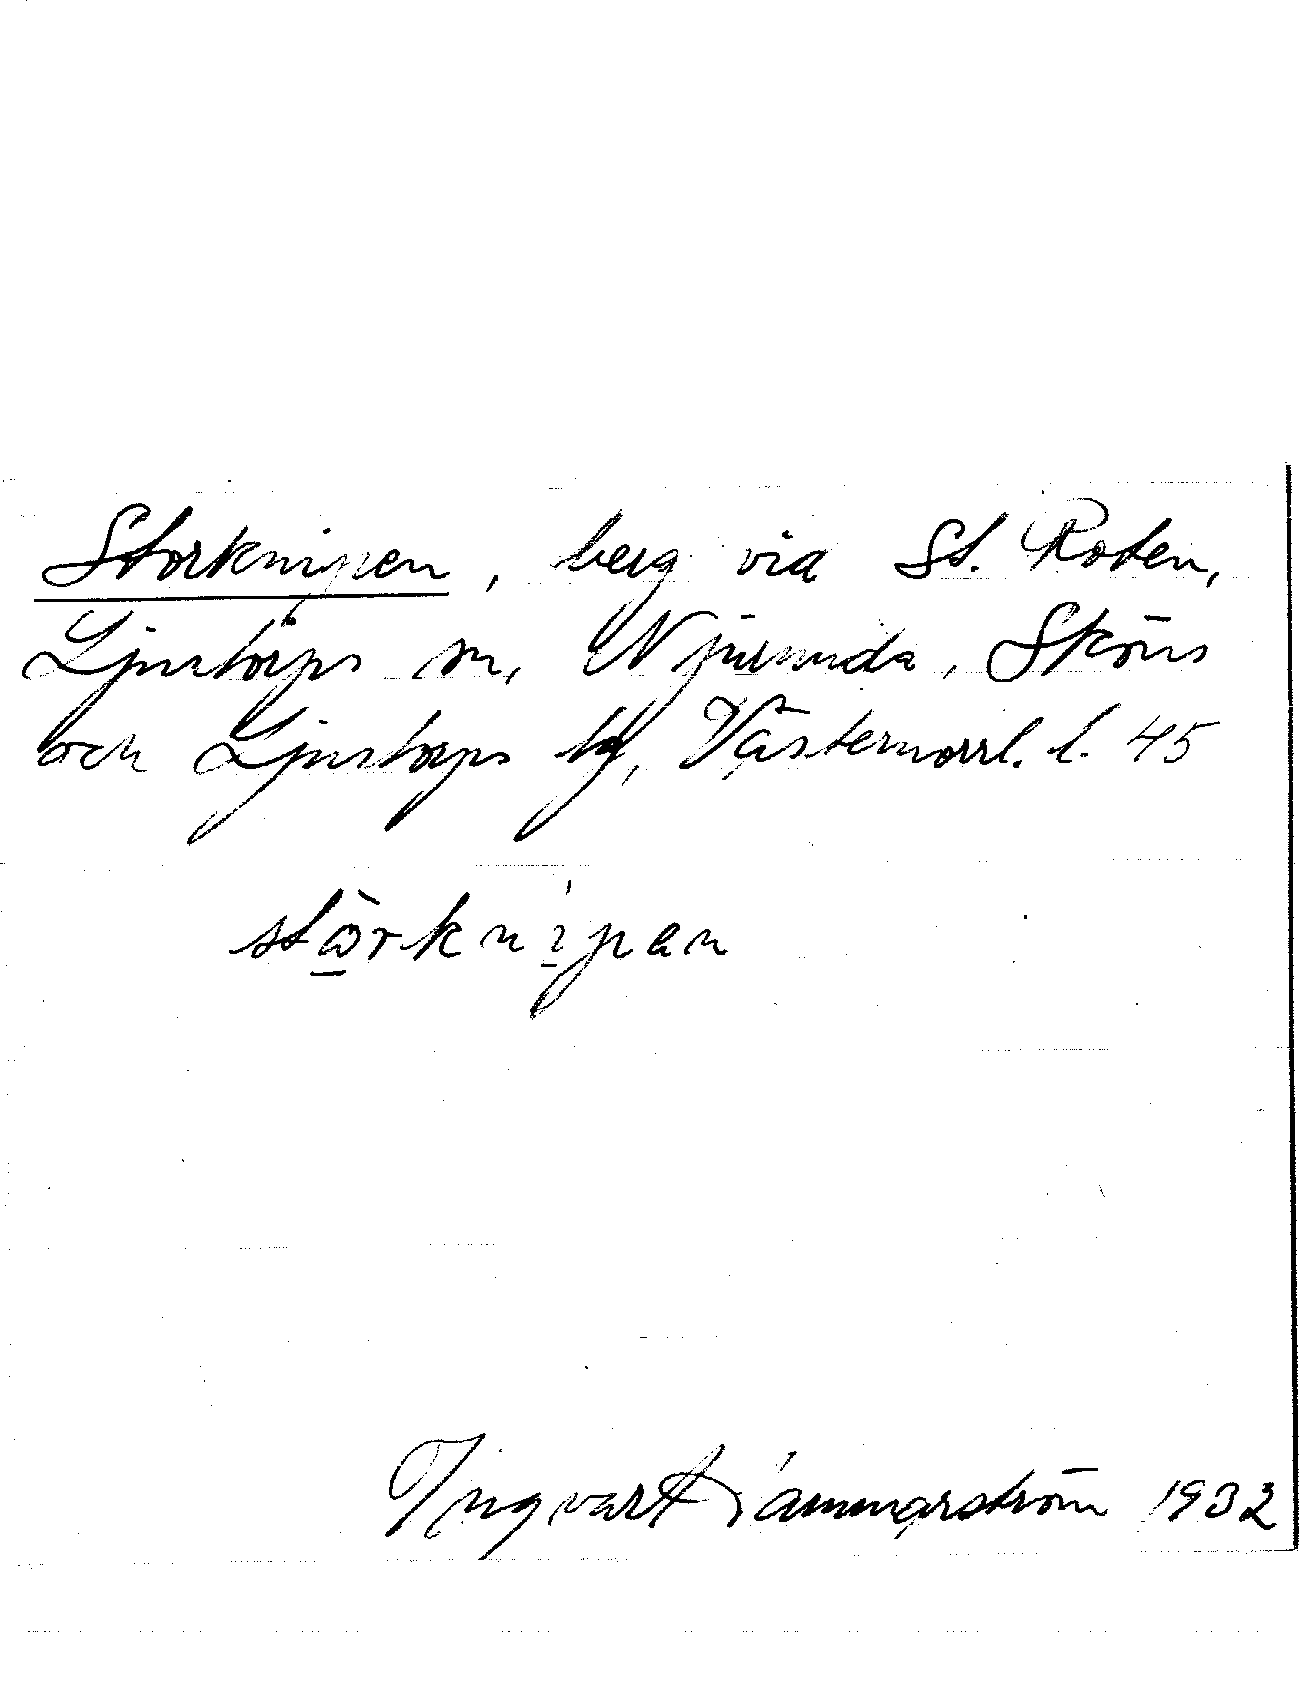 Storknipen, berg via St. Roten,
Ljustorps sn, Njurunda, Sköns
och Ljustorps tg, Västernorrl. l. 45
stὼ̲rknípan
Ingvar Hammarström 1932